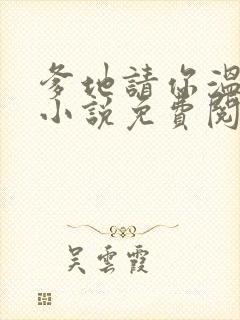 爹地請你溫
小說免費閱
吳雲霞